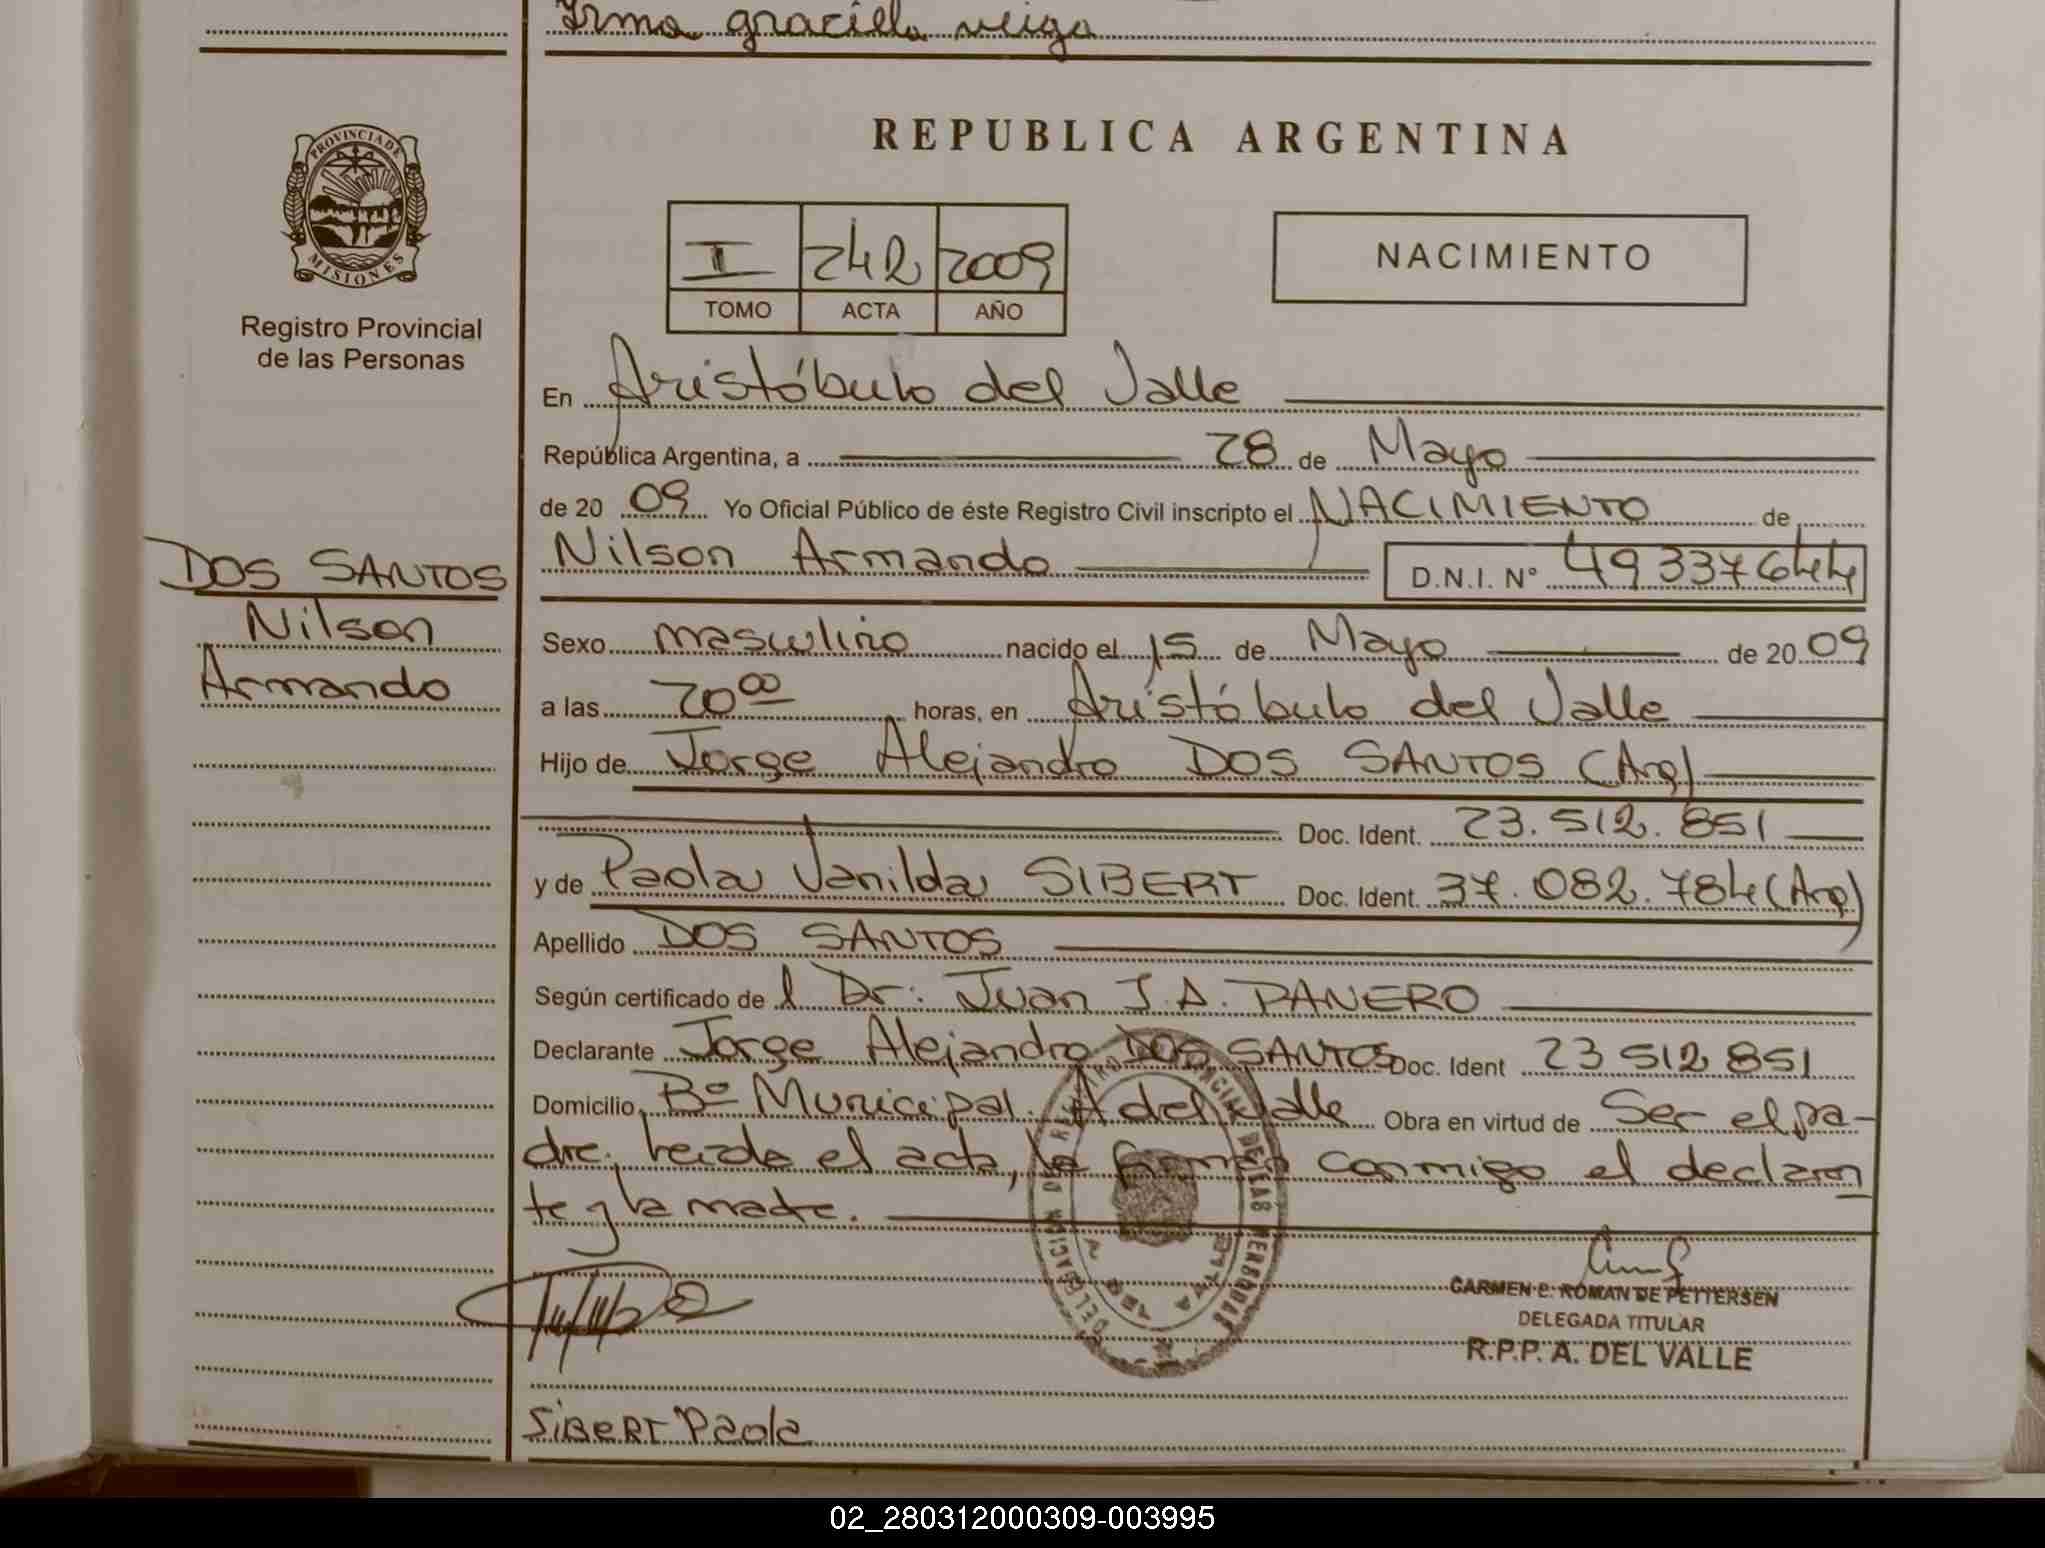 Irma graciela veiga
PROVINCIA DE
MISIONES
Registro Provincial
de las Personas
REPUBLICA ARGENTINA
I 242 2009
TOMO ACTA AÑO
NACIMIENTO
En Aristóbulo del Valle
República Argentina, a 28 de Mayo
de 20 09 Yo Oficial Público de éste Registro Civil inscripto el NACIMIENTO de
DOS SANTOS
Nilson
Armando
Nilson Armando D.N.I. N° 49337644
Sexo masculino nacido el 15 de Mayo de 20 09
a las 20 00 horas, en Aristóbulo del Valle
Hijo de Jorge Alejandro DOS SANTOS (Arg)
Doc. Ident. 23.512.851
y de Paola Vanilda SIBERT Doc. Ident. 37.082.784 (Arg)
Apellido DOS SANTOS
Según certificado de l Dr: Juan J.A. PANERO
Declarante Jorge Alejandro DOS SANTOS Doc. Ident 23 512 851
Domicilio Bº Municipal. A del Valle Obra en virtud de Ser el pa-
dre, leida el acta, la firman conmigo el declaran
te y la madre.
CARMEN E. ROMAN DE PETTERSEN
DELEGADA TITULAR
R.P.P. A. DEL VALLE
SIBERT Paola
02_280312000309-003995